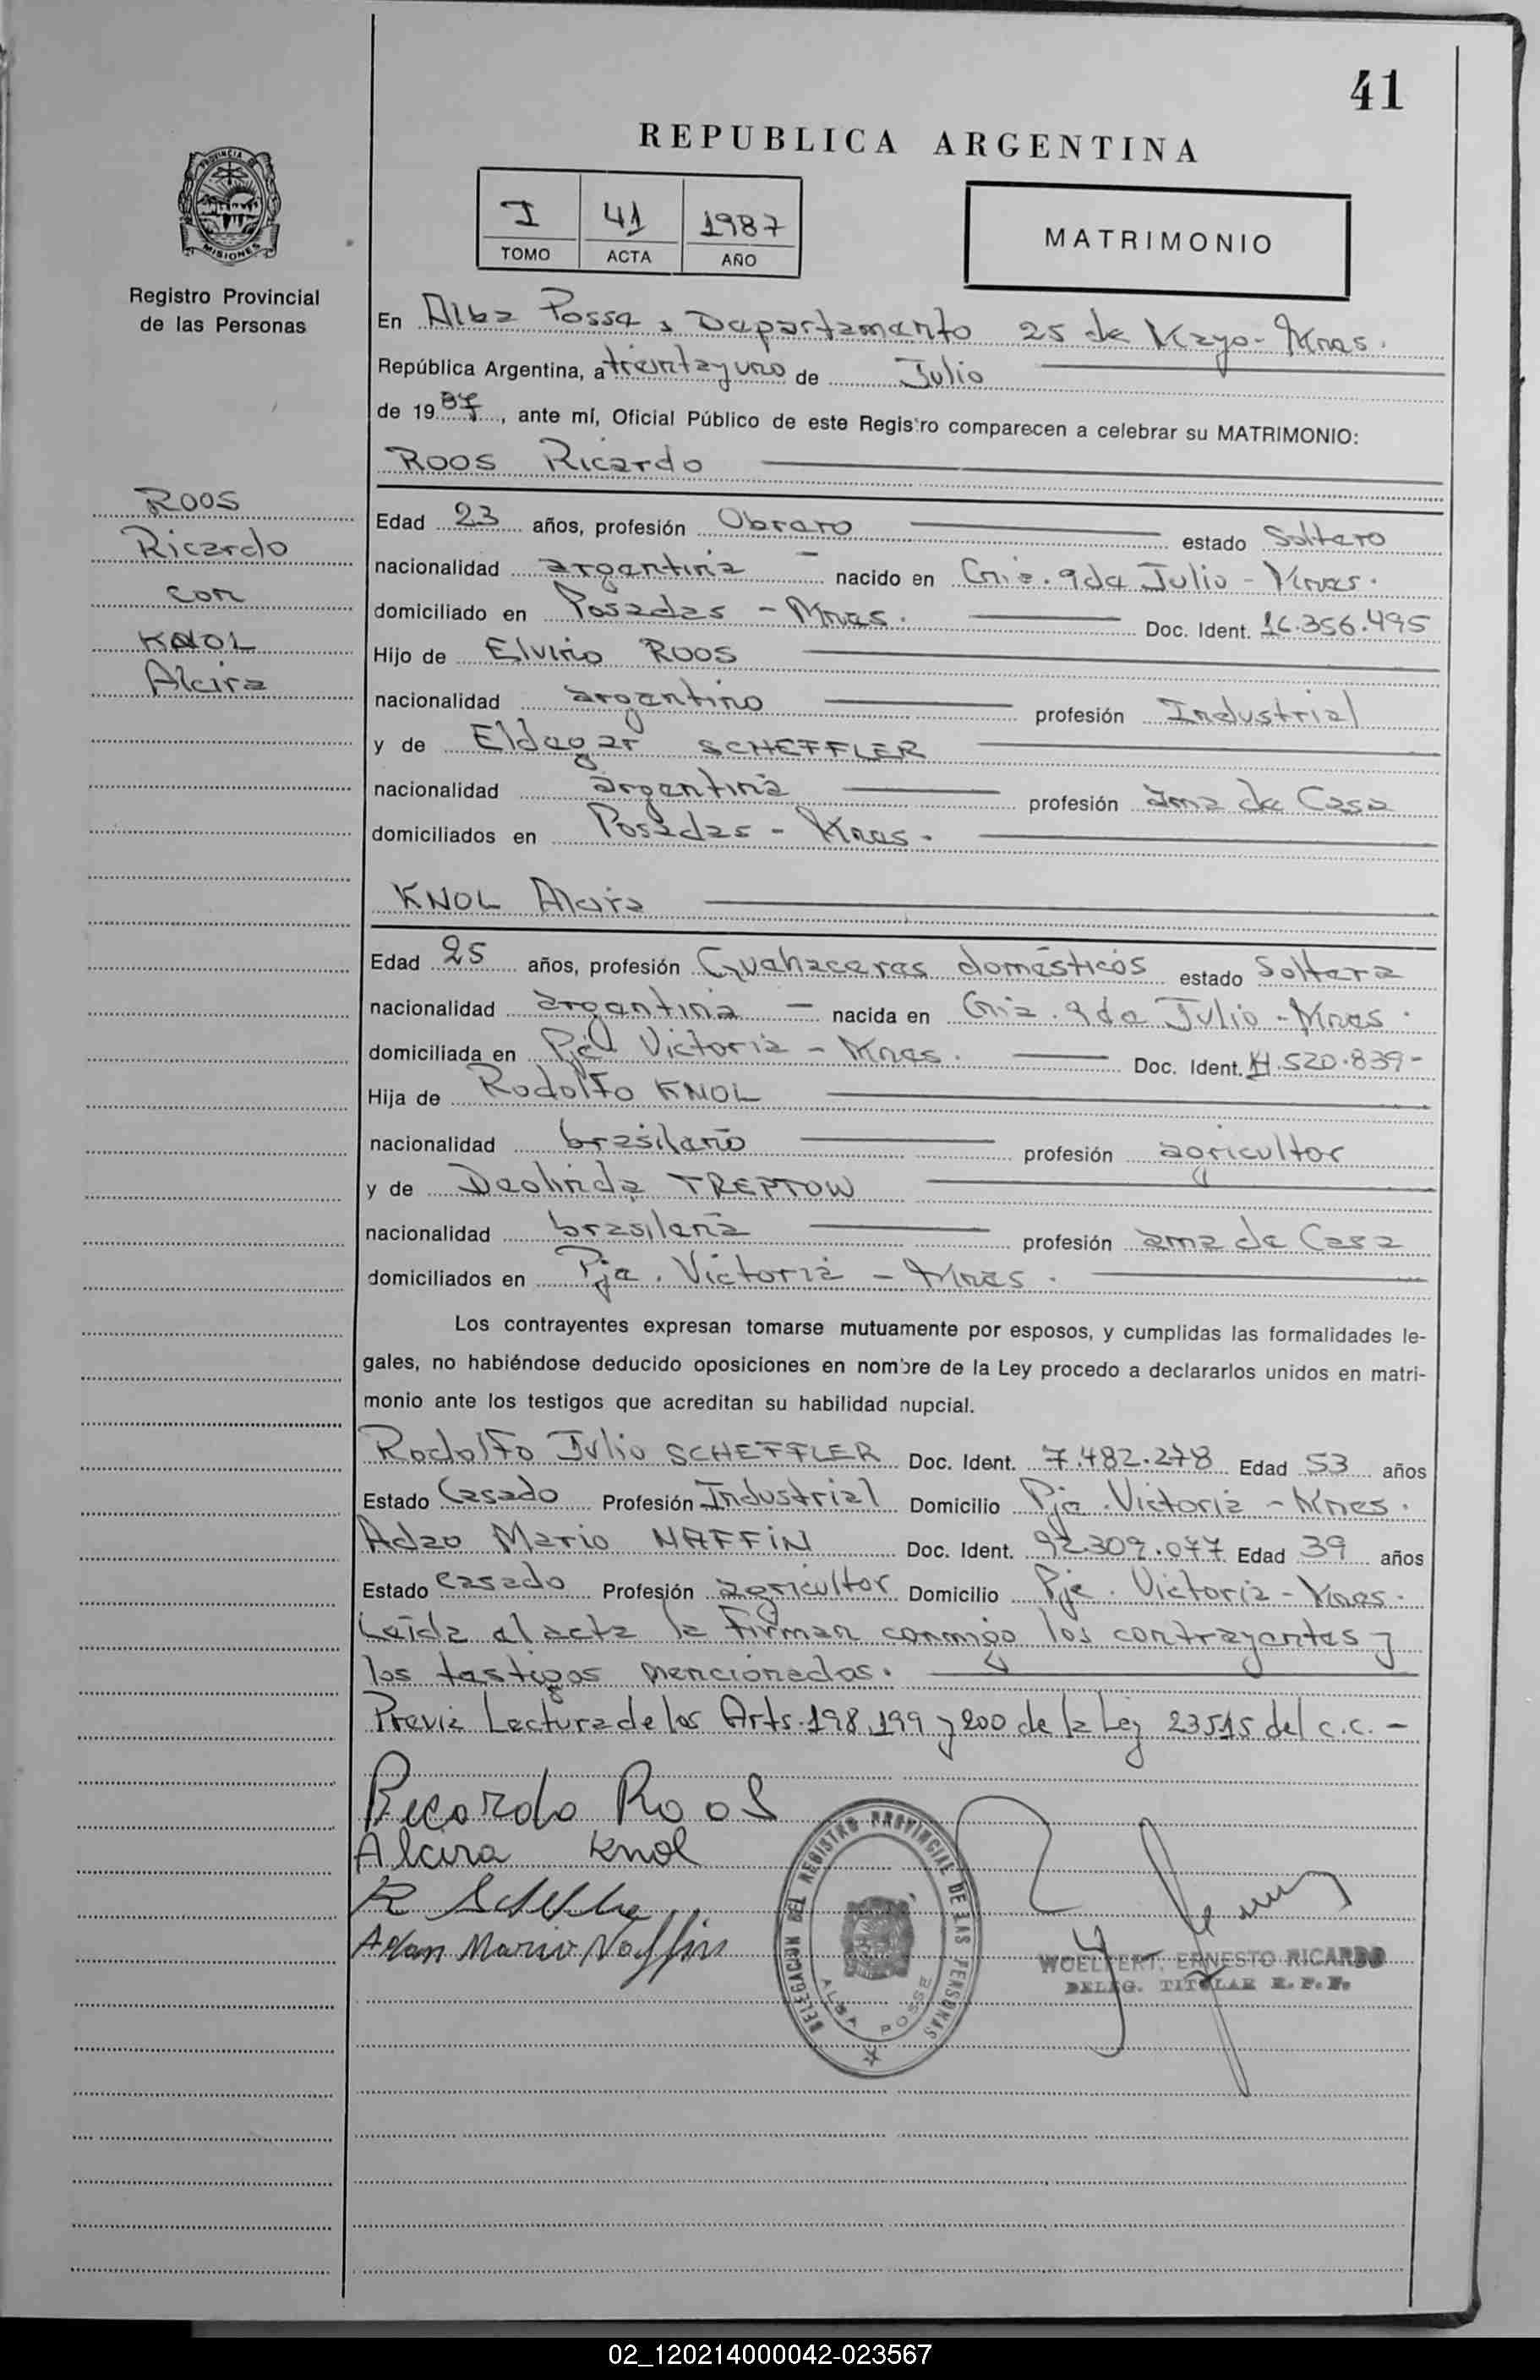 41
REPUBLICA ARGENTINA
I 41 1987
TOMO ACTA AÑO
MATRIMONIO
PROVINCIA DE
MISIONES
Registro Provincial
de las Personas
En Alba Posse, Departamento 25 de Mayo - Mnes.
República Argentina, a treinta y uno de Julio
de 1987, ante mí, Oficial Público de este Registro comparecen a celebrar su MATRIMONIO:
ROOS Ricardo
ROOS
Ricardo
con
KNOL
Alcira
Edad 23 años, profesión Obrero estado Soltero
nacionalidad argentina - nacido en Cnia. 9 de Julio - Mnes.
domiciliado en Posadas - Mnes. Doc. Ident. 16.356.495
Hijo de Elvirio ROOS
nacionalidad argentino profesión Industrial
y de Eldegar SCHEFFLER
nacionalidad argentina profesión ama de Casa
domiciliados en Posadas - Mnes.
KNOL Alcira
Edad 25 años, profesión Quehaceres domésticos estado Soltera
nacionalidad argentina - nacida en Cnia. 9 de Julio - Mnes.
domiciliada en Pje Victoria - Mnes. Doc. Ident. .520.839-
Hija de Rodolfo KNOL
nacionalidad brasileño profesión agricultor
y de Deolinda TREPTOW
nacionalidad brasileña profesión ama de Casa
domiciliados en Pje. Victoria - Mnes.
Los contrayentes expresan tomarse mutuamente por esposos, y cumplidas las formalidades le-
gales, no habiéndose deducido oposiciones en nombre de la Ley procedo a declararlos unidos en matri-
monio ante los testigos que acreditan su habilidad nupcial.
Rodolfo Julio SCHEFFLER Doc. Ident. 7.482.278 Edad 53 años
Estado Casado Profesión Industrial Domicilio Pje. Victoria - Mnes.
Mario NAFFIN Doc. Ident. 92.309.077 Edad 39 años
Estado casado Profesión agricultor Domicilio Pje. Victoria - Mnes.
Leída el acta la firman conmigo los contrayentes y
los testigos mencionados.
Previa Lectura de los Arts. 198, 199 y 200 de la Ley 23515 del c.c. -
Ricardo Roos
Alcira Knol
R Scheffler
Adan Mario Naffin
DELEGACION DEL REGISTRO PROVINCIAL DE LAS PERSONAS
ALBA POSSE
WOELFERT, ERNESTO RICARDO
DELEG. TITULAR R. P. P.
02_120214000042-023567